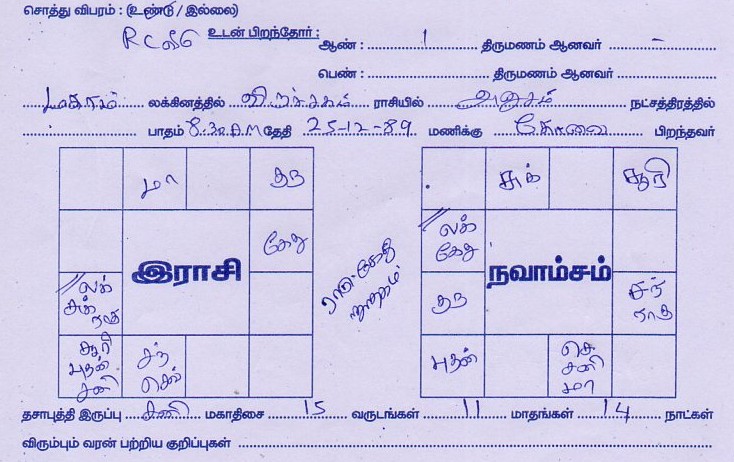 சொத்து விபரம் : (உண்டு / இல்லை)
உடன் பிறந்தோர் : ஆண் : 1 திருமணம் ஆனவர் –
பெண் : திருமணம் ஆனவர்
மகரம் லக்கினத்தில் விருச்சகம் ராசியில் அனுசம் நட்சத்திரத்தில்
பாதம் 8.30 A.M தேதி 25-12-89 மணிக்கு கோவை பிறந்தவர்
மா குரு
கேது
இராசி
லக் சுக் ராகு
சூரி புதன் சனி
சந் செவ்
ராகு-கேது
சுக் சூரி
லக் கேது
நவாம்சம்
குரு
சந் ராகு
புதன்
செ சனி மா
தசாபுத்தி இருப்பு சனி மகாதிசை 15 வருடங்கள் 11 மாதங்கள் 14 நாட்கள்
விரும்பும் வரன் பற்றிய குறிப்புகள்